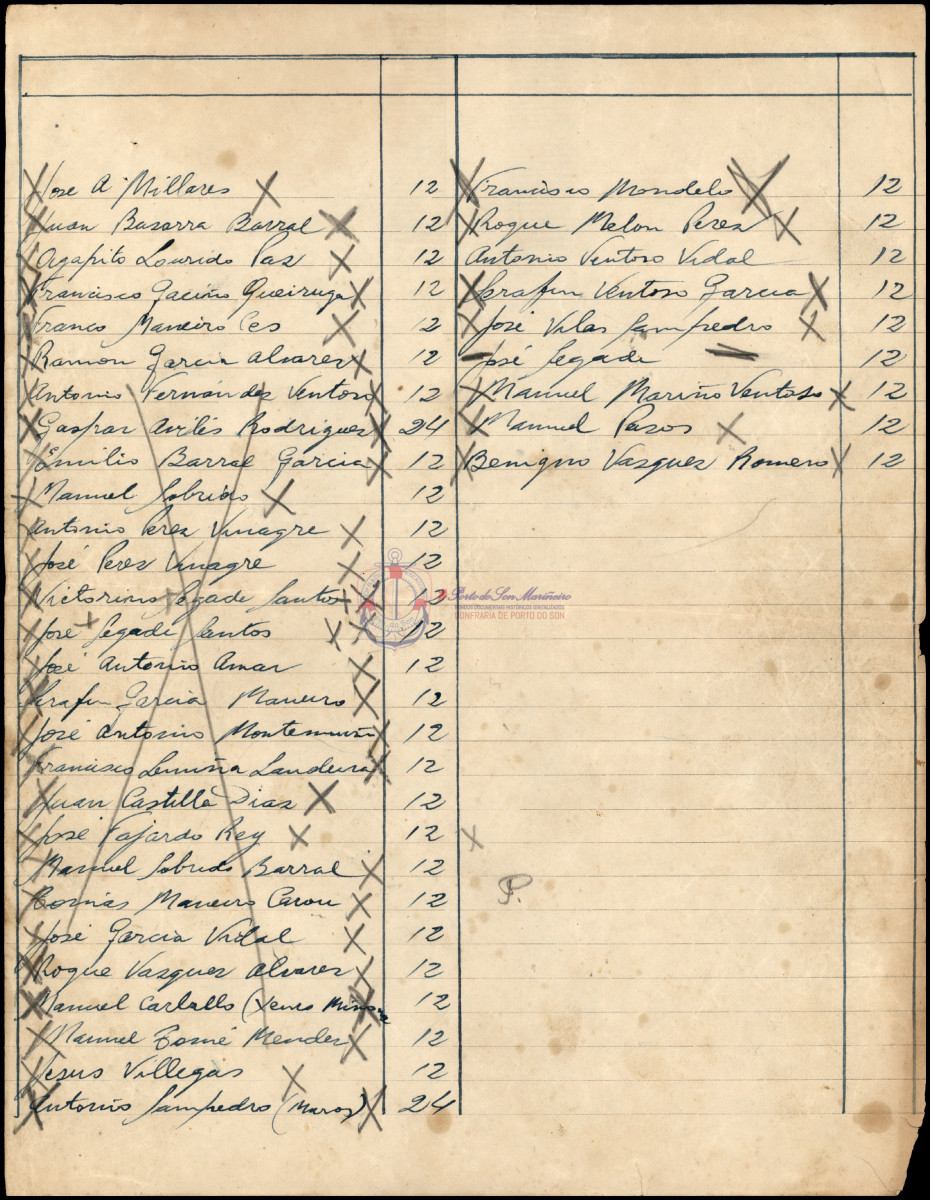 Jose A Millares 12
Juan Basarra Barral 12
Agapito Lourido Paz 12
Francisco Gaciño Queiruga 12
Franco Maneiro Ces 12
Ramon Garcia Alvares 12
Antonio Fernandez Ventoso 12
Gaspar Avilés Rodrigues 24
Emilio Barral Garcia 12
Manuel Sobrido 12
Antonio Peres Vinagre 12
José Peres Vinagre 12
Victorino Segade Santos 12
José Segade Santos 12
José Antonio Amar 12
Serafin Garcia Maneiro 12
José Antonio 12
Francisco Lemiña Landeira 12
Juan Castilla Dias 12
José Fajardo Rey 12
Manuel Sobrido Barral 12
Tomás Maneiro Carou 12
José Garcia Vidal 12
Roque Vasques Alvares 12
Manuel Carballo ( 12
Manuel Tomé Mendez 12
Jesus Villegas 12
Antonio Sampedro (Maroz) 24
Francisco Mondelo 12
Roque Melon Peres 12
Antonio Ventoso Vidal 12
Serafin Ventoso Garcia 12
José Vilas Sampedro 12
José Segade 12
Manuel Mariño Ventoso 12
Manuel Pazos 12
Benigno Vasquez Romero 12
Porto do Son Mariñeiro
FONDOS DOCUMENTAIS HISTÓRICOS DIXITALIZADOS
CONFRARÍA DE PORTO DO SON
P.